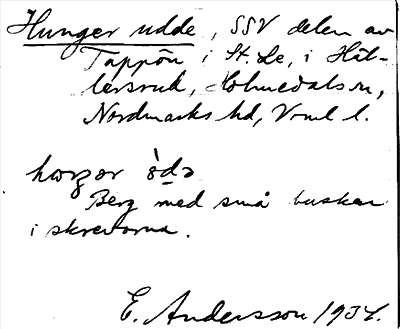 Hunger udde, SSV delen av
Tappön i St. Le, i Häl-
lersrud, Holmedals sn,
Nordmarks hd, Vrml l.
hoŋər ùdə
Berg med små buskar
i skrevorna.
E. Andersson 1934.